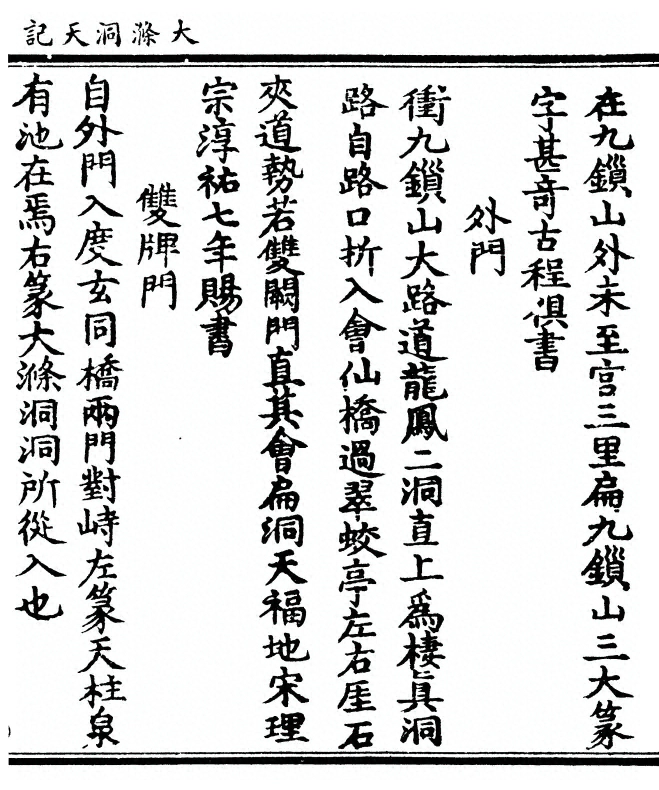 大滌洞天記
在九鎖山外未至宫三里扁九鎖山三大篆
字甚竒古程俱書
外門
衝九鎖山大路道龍鳳二洞直上為棲真洞
路自路口折入會仙橋過翠蛟亭左右厓石
夾道勢若雙闕門直其會扁洞天福地宋理
宗淳祐七年賜書
雙牌門
自外門入度玄同橋兩門對峙左篆天柱泉
有池在焉右篆大滌洞洞所從入也